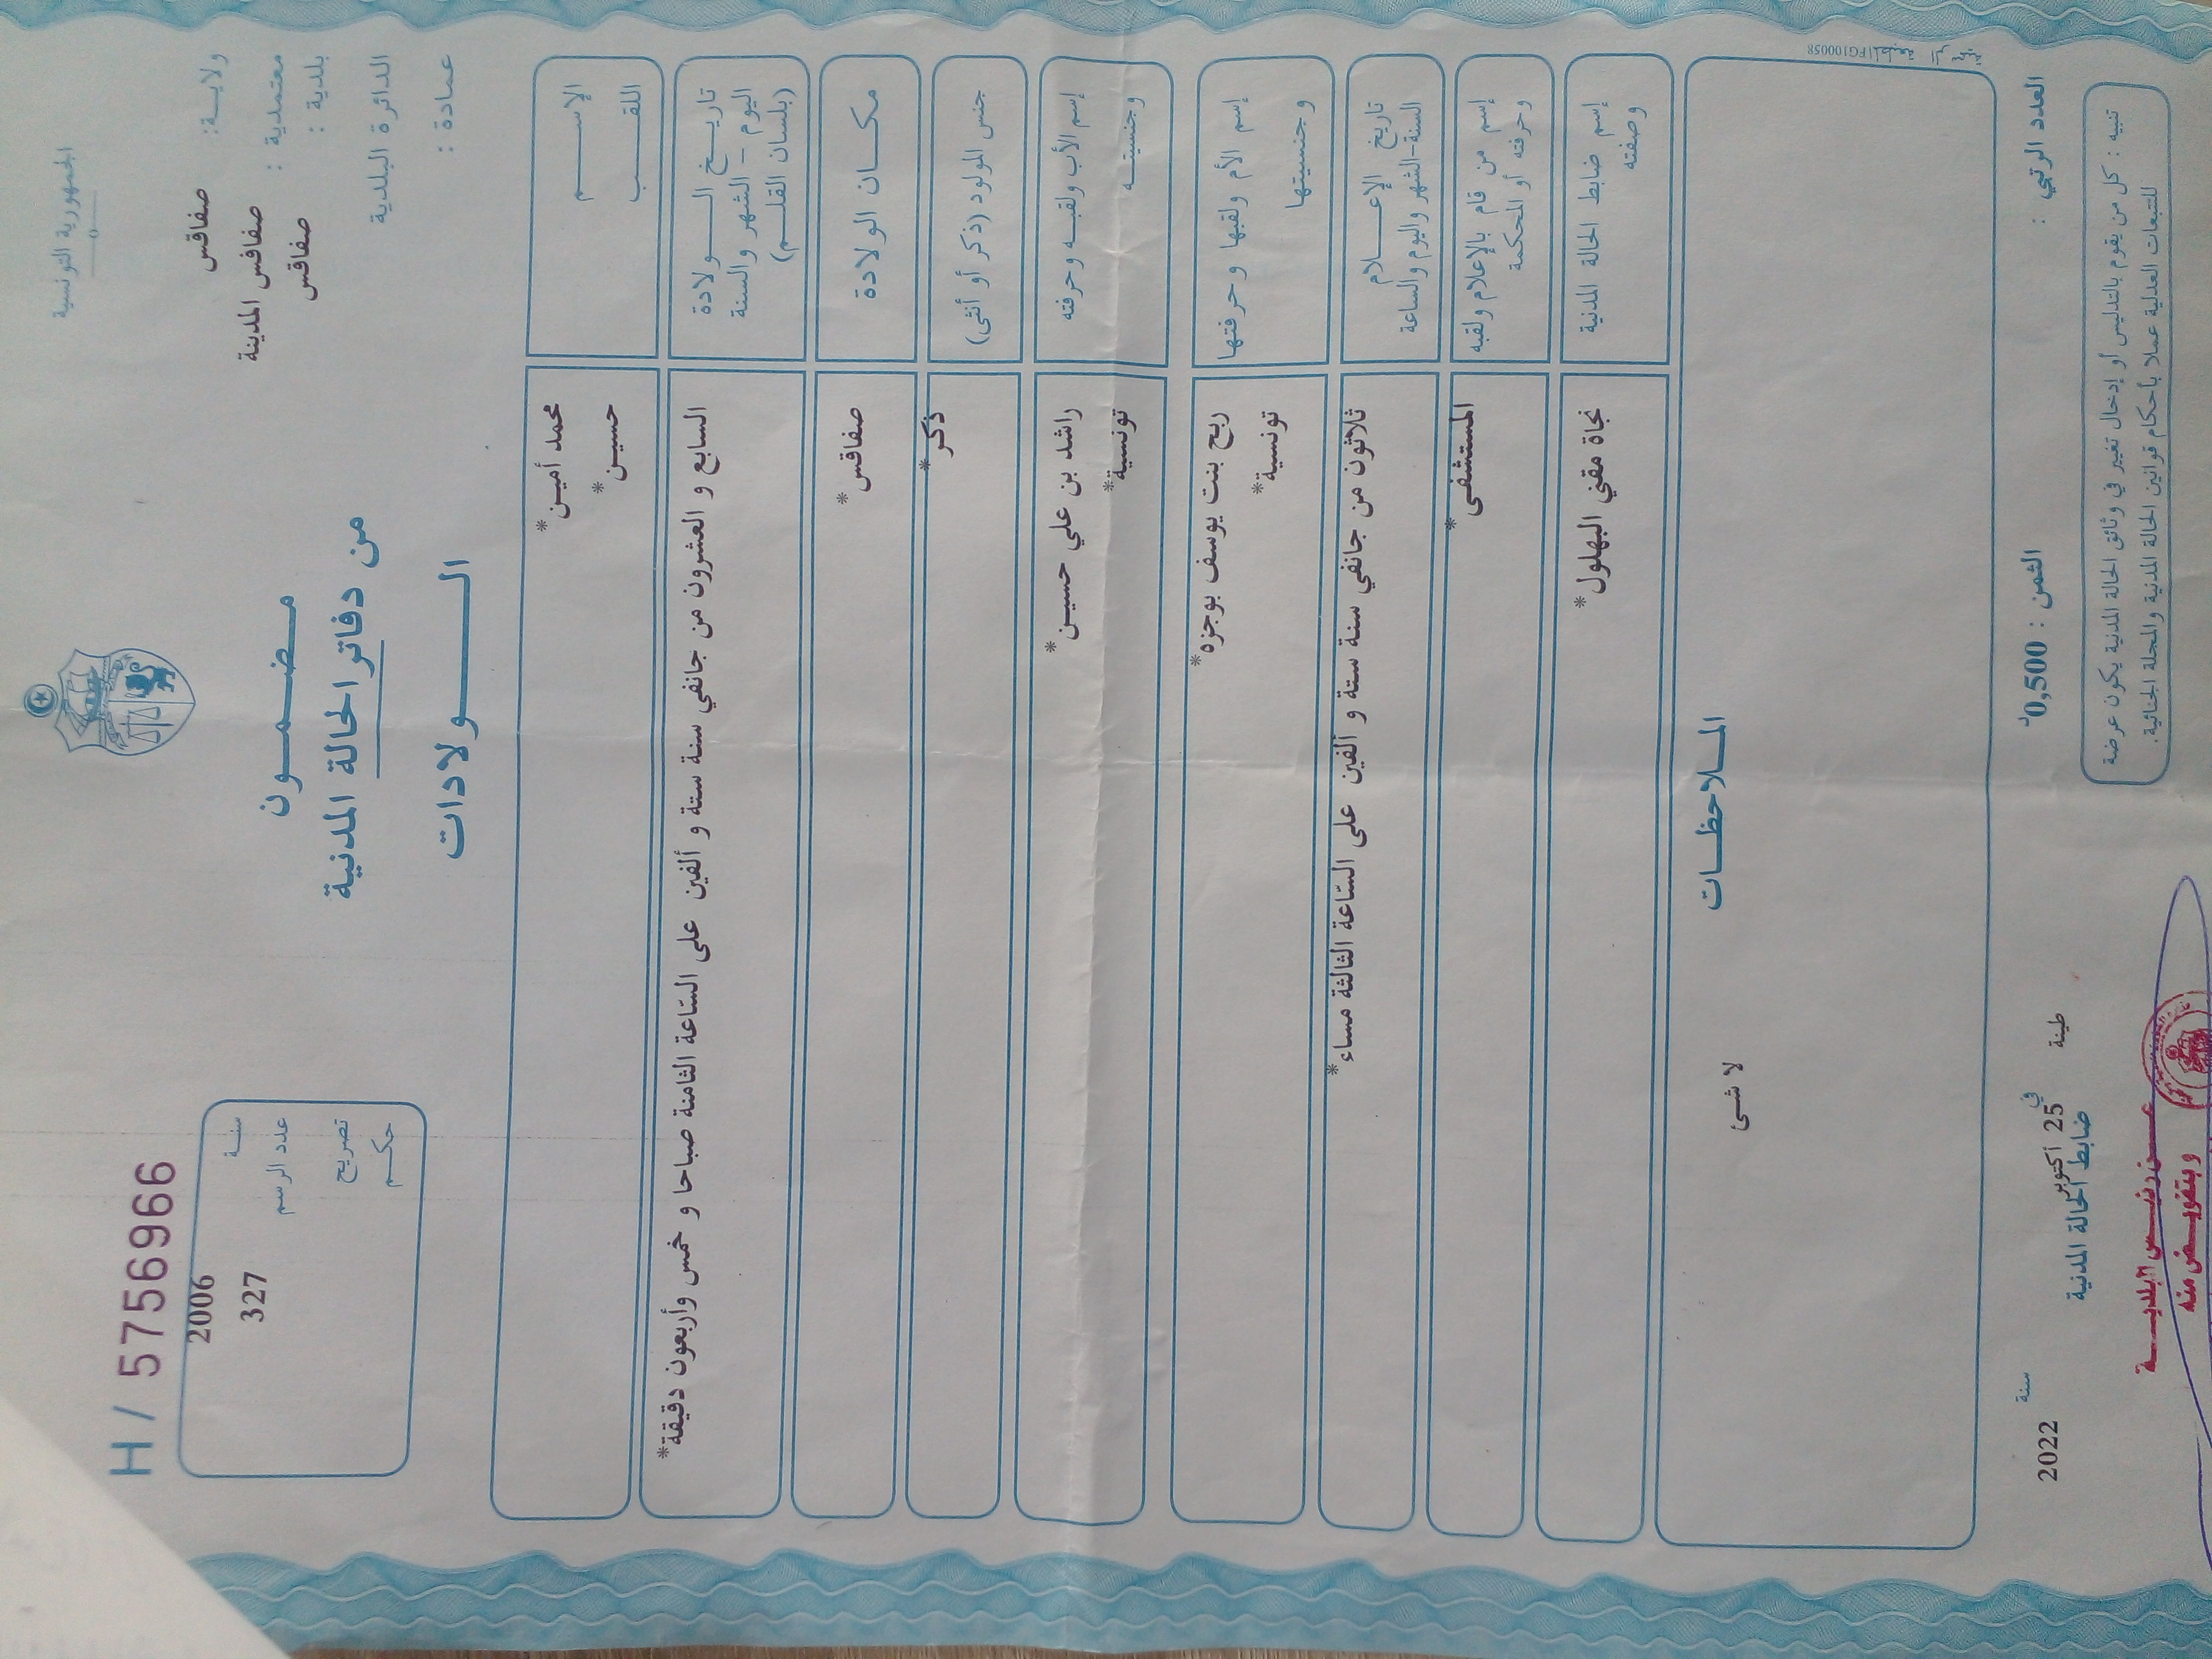 الجمهورية التونسية
H / 5756966
ولايـة: صفاقس
معتمدية : صفاقس المدينة
بلدية : صفاقس
الدائرة البلدية
عمادة :
مضمـــون
من دفاتر الحالة المدنية
الـــولادات
سنـة 2006
عدد الرسم 327
تصريح
حكـم
الإســـم محمد أمين*
اللقـــب حسين*
تاريـــخ الـــولادة السابع و العشرون من جانفي سنة ستة و ألفين على السّاعة الثامنة صباحا و خمس وأربعون دقيقة*
اليوم - الشهر والسنة
(بلسان القلـم)
مكـــان الولادة صفاقس*
جنس المولود (ذكر أو أنثى) ذكر*
إسم الأب ولقبـه وحرفته راشد بن علي حسين*
وجنسيتـــه تونسية*
إسم الأم ولقبها وحرفتها ربح بنت يوسف بوجزه*
وجنسيتها تونسية*
تاريخ الإعـــلام ثلاثون من جانفي سنة ستة و ألفين على السّاعة الثالثة مساء*
السنة-الشهر واليوم والساعة
إسم من قام بالإعلام ولقبه المستشفى*
وحرفته أو المحكمة
إسم ضابط الحالة المدنية نجاة مقني البهلول*
وصفته
المـلاحظـات
لا شى
العدد الرتبي :
الثمن : 0,500د
طينة في 25 أكتوبر سنة 2022
ضابط الحالة المدنية
تنبيه : كل من يقوم بالتدليس أو إدخال تغيير في وثائق الحالة المدنية يكون عرضة
للتتبعات العدلية عملا بأحكام قوانين الحالة المدنية والمجلة الجنائية.
عـــن رئيـــس البلديـــة
وبتفويـض منه